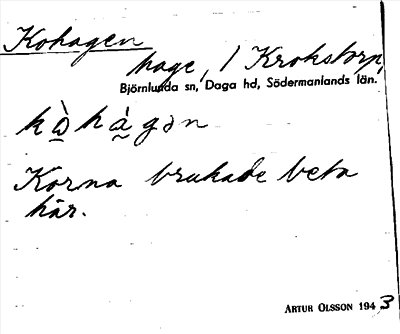 Kohagen
hage, / Krokstorp,
Björnlunda sn, Daga hd, Södermanlands län.
kòhágən
Korna brukade beta
här.
ARTUR OLSSON 1943